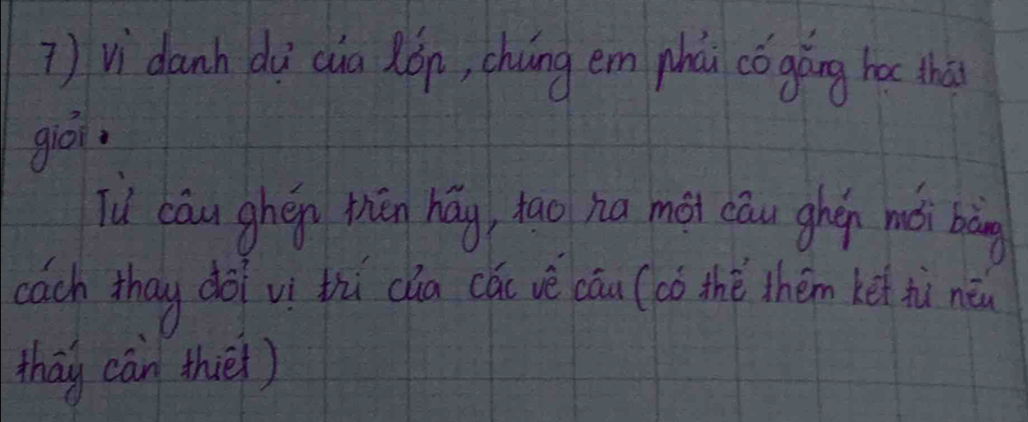 7) Vì danh dự của lớp, chúng em phải cố gắng học thật
giỏi.
Từ câu ghép trên hãy, tạo ra một câu ghép mới bằng
cách thay đổi vị trí của các vế câu (có thể thêm kết từ nếu
thấy cần thiết)